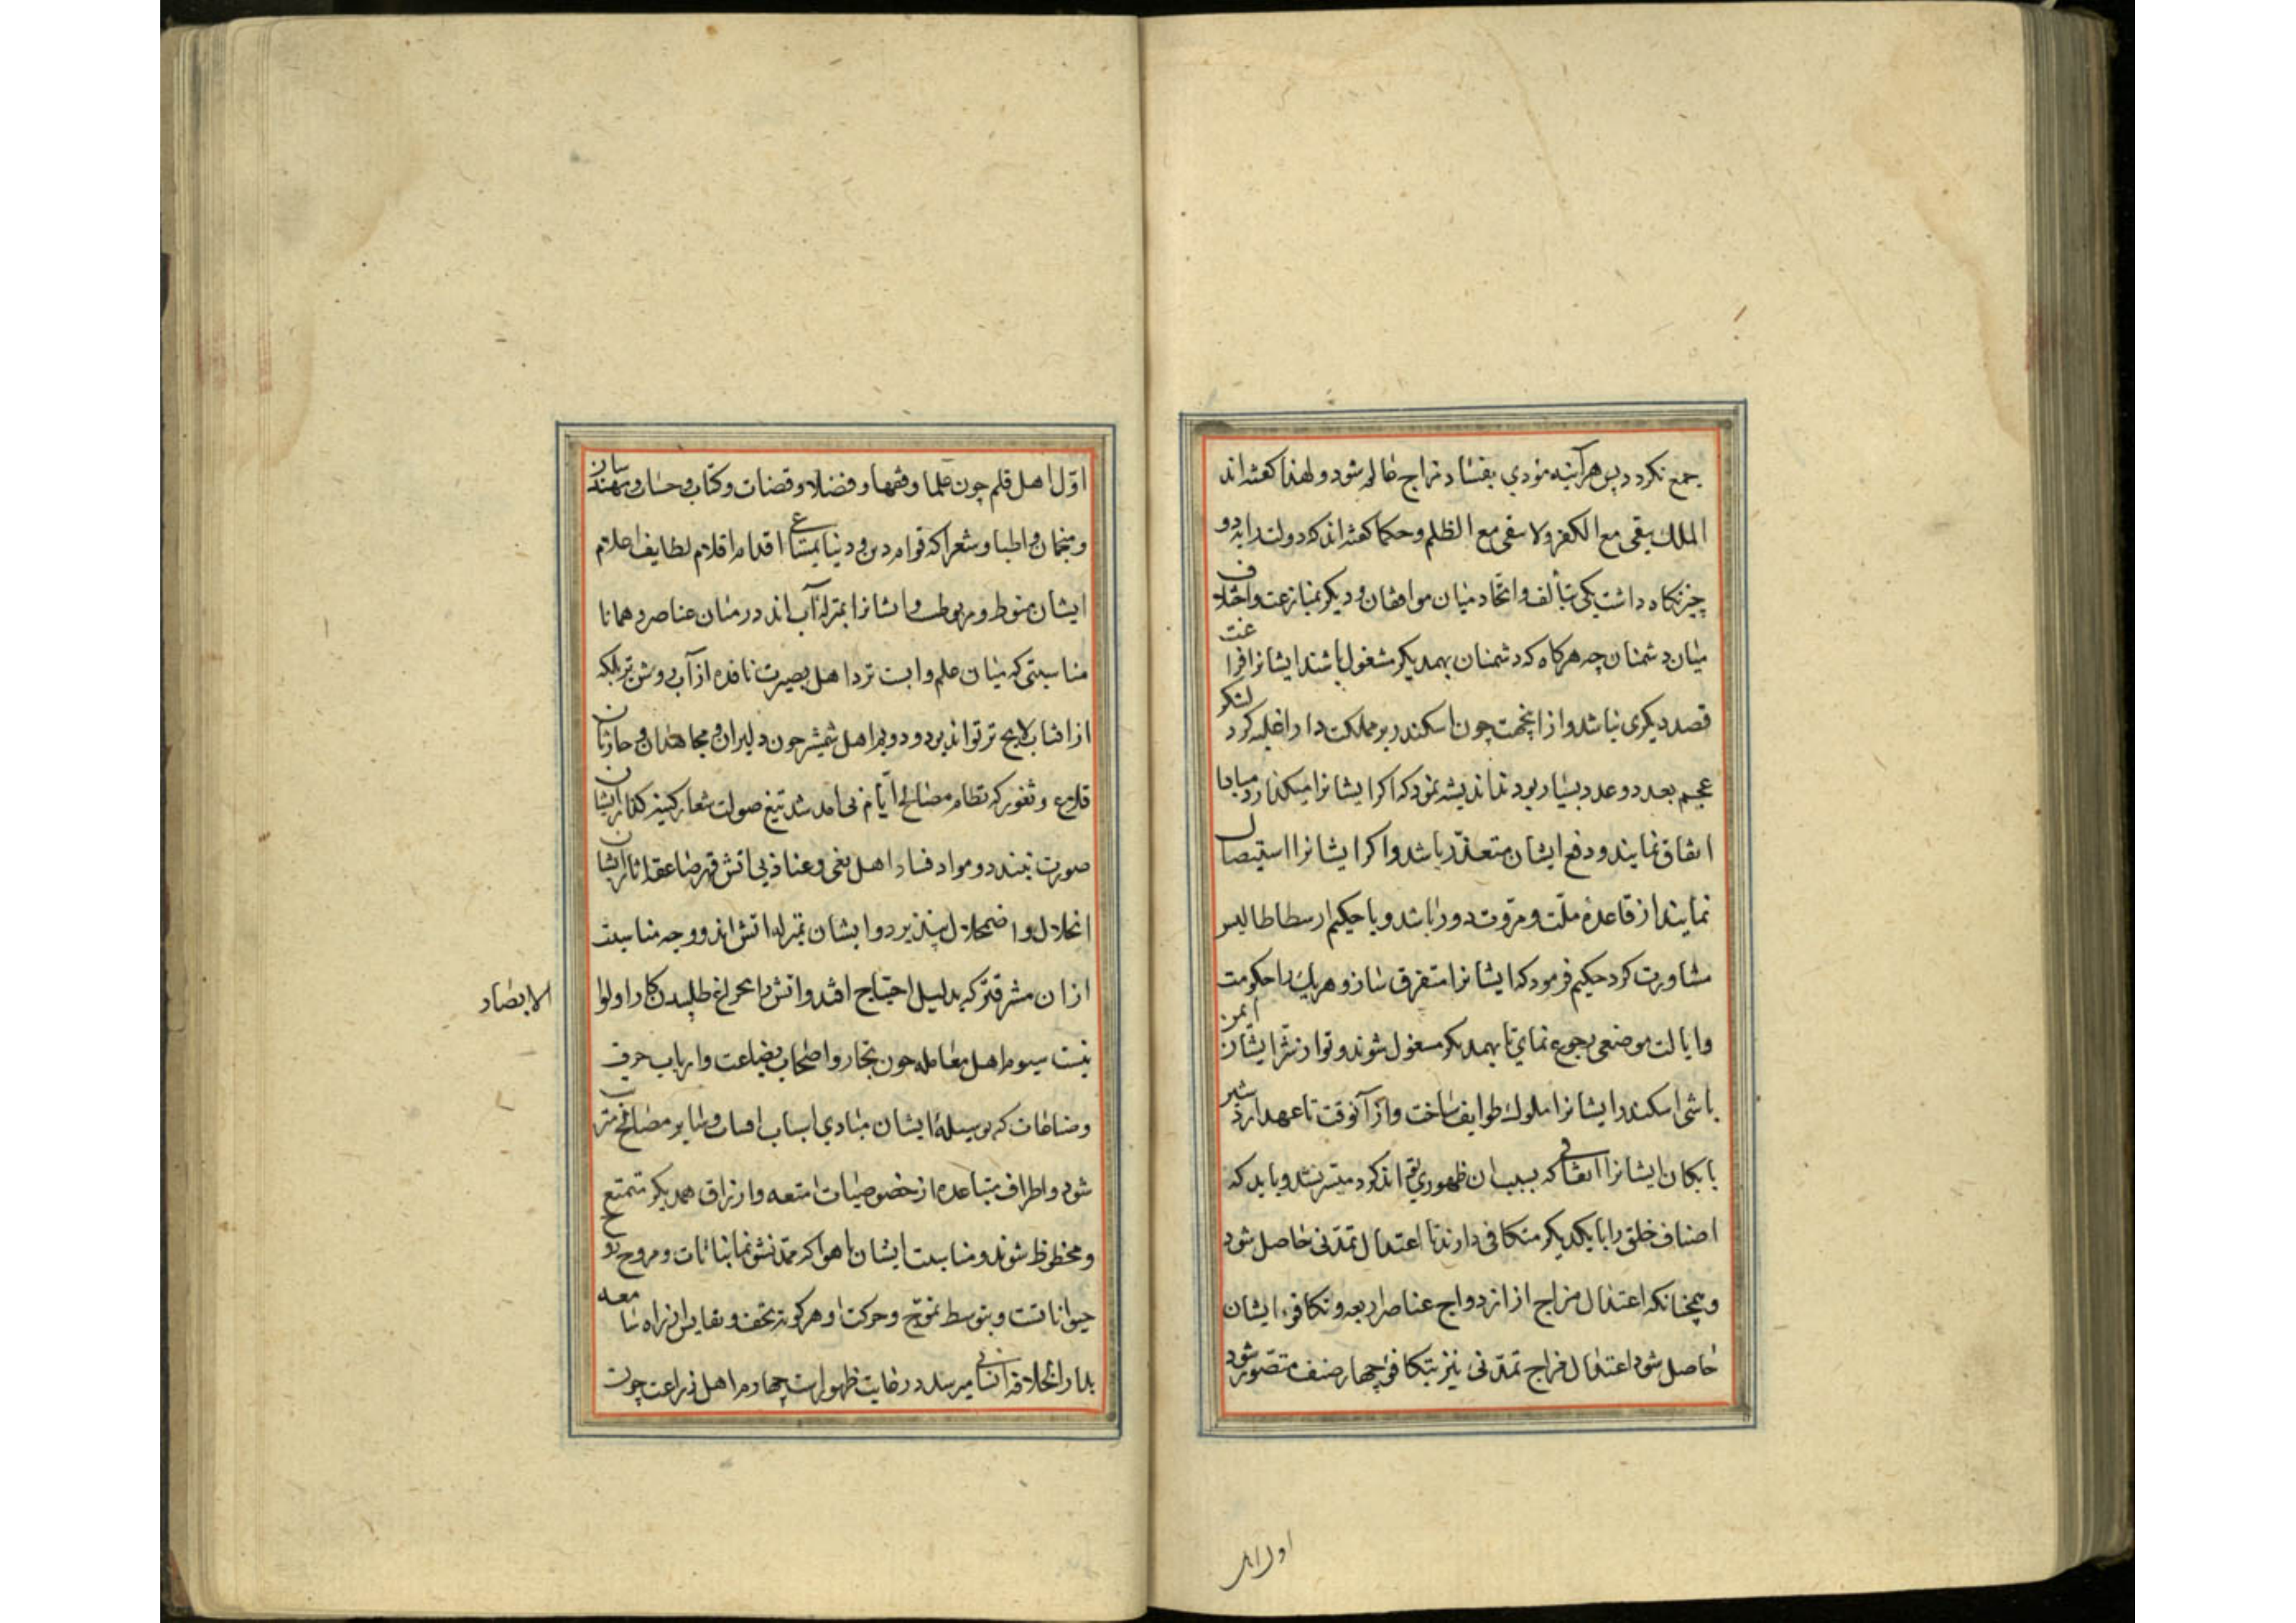 جمع نکردد پس هرآینه مؤدي بفساد مزاج عالم شود و لهذا کفته‌اند
الملک یبقی مع الکفر ولا یبقی مع الظلم و حکما کفته‌اند که دولت را بدو
چیز نکاه داشت یکی بتألف و اتحاد میان موافقان و دیکر بمنازعت و اختلاف
میان دشمنان چه هرکاه که دشمنان بهمدیکر مشغول باشند ایشانرا فراغت
قصد دیکری نباشد و از اینجهت چون اسکندر بر مملکت دارا غلبه کرد لشکر
عجم بعدد و عدد بسیار بودند اندیشه نمود که اکر ایشانرا میکذارد مبادا
اتفاق نمایند و دفع ایشان متعذّر باشد و اکر ایشانرا استیصال
نمایند از قاعدهٔ ملّت و مروّت دور باشد و با حکیم ارسطاطالیس
مشاورت کرد حکیم فرمود که ایشانرا متفرق ساز و هریک را حکومت
و ایالت موضعی رجوع نمای تا بهمدیکر مشغول شوند و تو از شرّ ایشان ایمن
باشی اسکندر ایشانرا ملوک طوایف ساخت و از آنوقت تا عهد اردشیر
بابکان ایشانرا اتفاقی که بسبب ان ظهوری توانند کرد میسر نشد و باید که
اصناف خلق را با یکدیکر متکافی دارند تا اعتدال تمدّنی حاصل شود
و همچنانکه اعتدال مزاج از ازدواج عناصر اربعه و تکافوء ایشان
حاصل شود اعتدال مزاج تمدّنی نیز بتکافؤ چهار صنف متصور شود
اول اهل
اوّل اهل قلم چون علما و فقها و فضلا و قضات و کتّاب و حسّاب و مهندسان
و منجمان و اطبا و شعرا که قوام دین و دنیا بمساعی اقدام اقلام لطایف اعلام
ایشان منوط و مربوطست و ایشانرا بمنزلهٔ آب‌اند در میان عناصر و همانا
مناسبتی که میان علم و آبست نزد اهل بصیرت نافذه از آب روشن تر بلکه
از افتاب لایح تر تواند بود و دویم اهل شمشیر چون دلیران و مجاهدان و حارسان
قلاع و ثغور که نظام مصالح ایّام بی امداد تیغ صولت شعار کینه کذار ایشان
صورت نبندد و مواد فساد اهل بغی و عناد بی اتش قهر صاعقه اثار ایشان
انحلال و اضمحلال نپذیرد و ایشان بمنزله اتش‌اند و وجه مناسبت
ازان مشرقتر که بدلیل احتیاج افتد و اتش را بچراغ طلبیدن کار اولوا
الابصار
نیست سیوم اهل معامله چون تجار و اصحاب بضاعت و ارباب حرف
و صناعات که بوسیلهٔ ایشان مبادي اسباب اقوات و سایر مصالح مترتب
شود و اطراف متباعده از خصوصیات امتعه و ارزاق همدیکر متمتع
و محظوظ شوند و مناسبت ایشان با هوا که ممدّ نشو نما نباتات و مروح روح
حیواناتست و بتوسط تموّج و حرکت او هرکونه تحف و نفایس از راه سامعه
بدار الخلافه انسانی میرسد در غایت ظهورست چهارم اهل زراعت چون